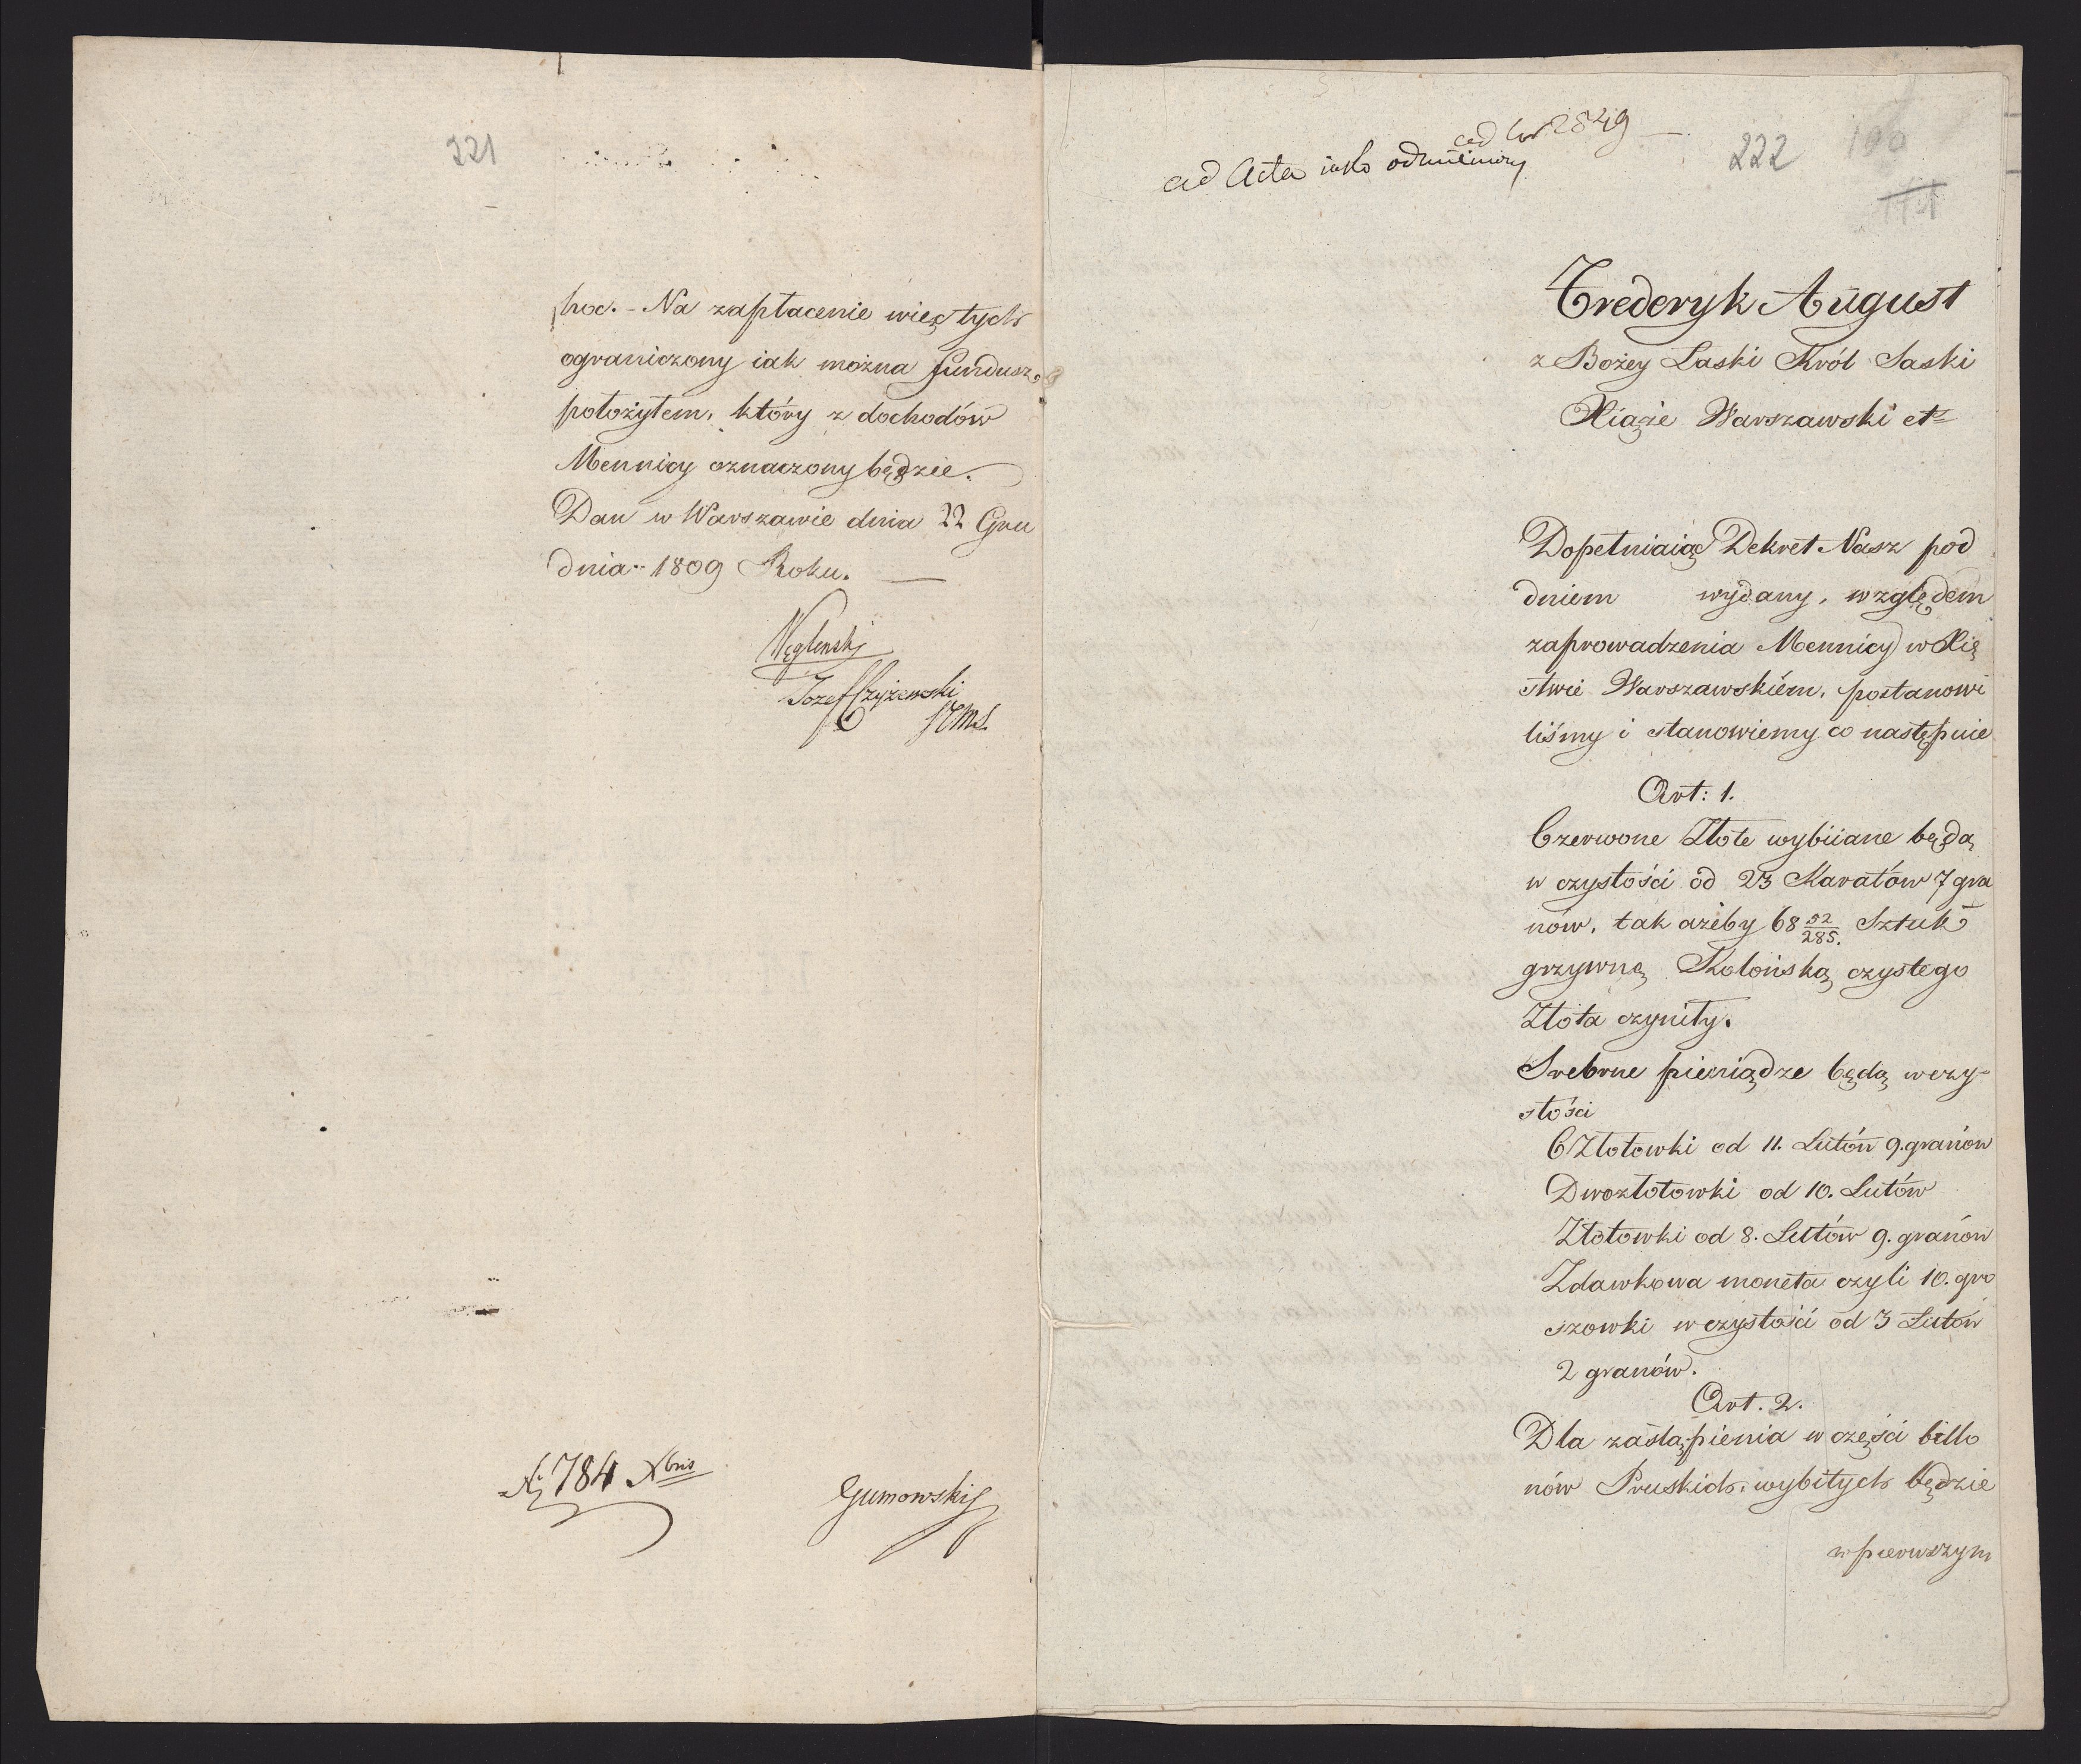 221
hoc. - Na zapłacenie więc tych
ograniczony iak można fundusz,
położyłem, który z dochodów
Mennicy oznaczony będzie.
Dan w Warszawie dnia 22 Gru
dnia 1809 Roku.
Węglenski
Jozef Czyżewski
784 Xbris
Gumowski
ad Nr 2849
ad Acta iako odmieniony
222
100
Frederyk August
z Bożey Laski Król Saski
Xiąże Warszawski etc
Dopełniaiąc Dekret Nasz pod
dniem wydany, względem
zaprowadzenia Mennicy w Xię
stwie Warszawskiém, postanowi
liśmy i stanowiemy co następuie
Art: 1.
Czerwone Złote wybiiane będą
w czystości od 23 Karatów 7 gra
nów, tak ażeby 68 52/285. Sztuk
grzywnę Kolońską czystego
Złota czyniły.
Srebrne pieniądze będą w czy-
stości
6 Złotowki od 11. Lutów 9. granów
Dwozłotowki od 10. Lutów
Złotowki od 8. Lutów 9. granów
Zdawkowa moneta czyli 10. gro
szowki w czystości od 3 Lutów
2 granów.
Art. 2.
Dla zastąpienia w części billo
nów Pruskich, wybitych będzie
w pierwszym